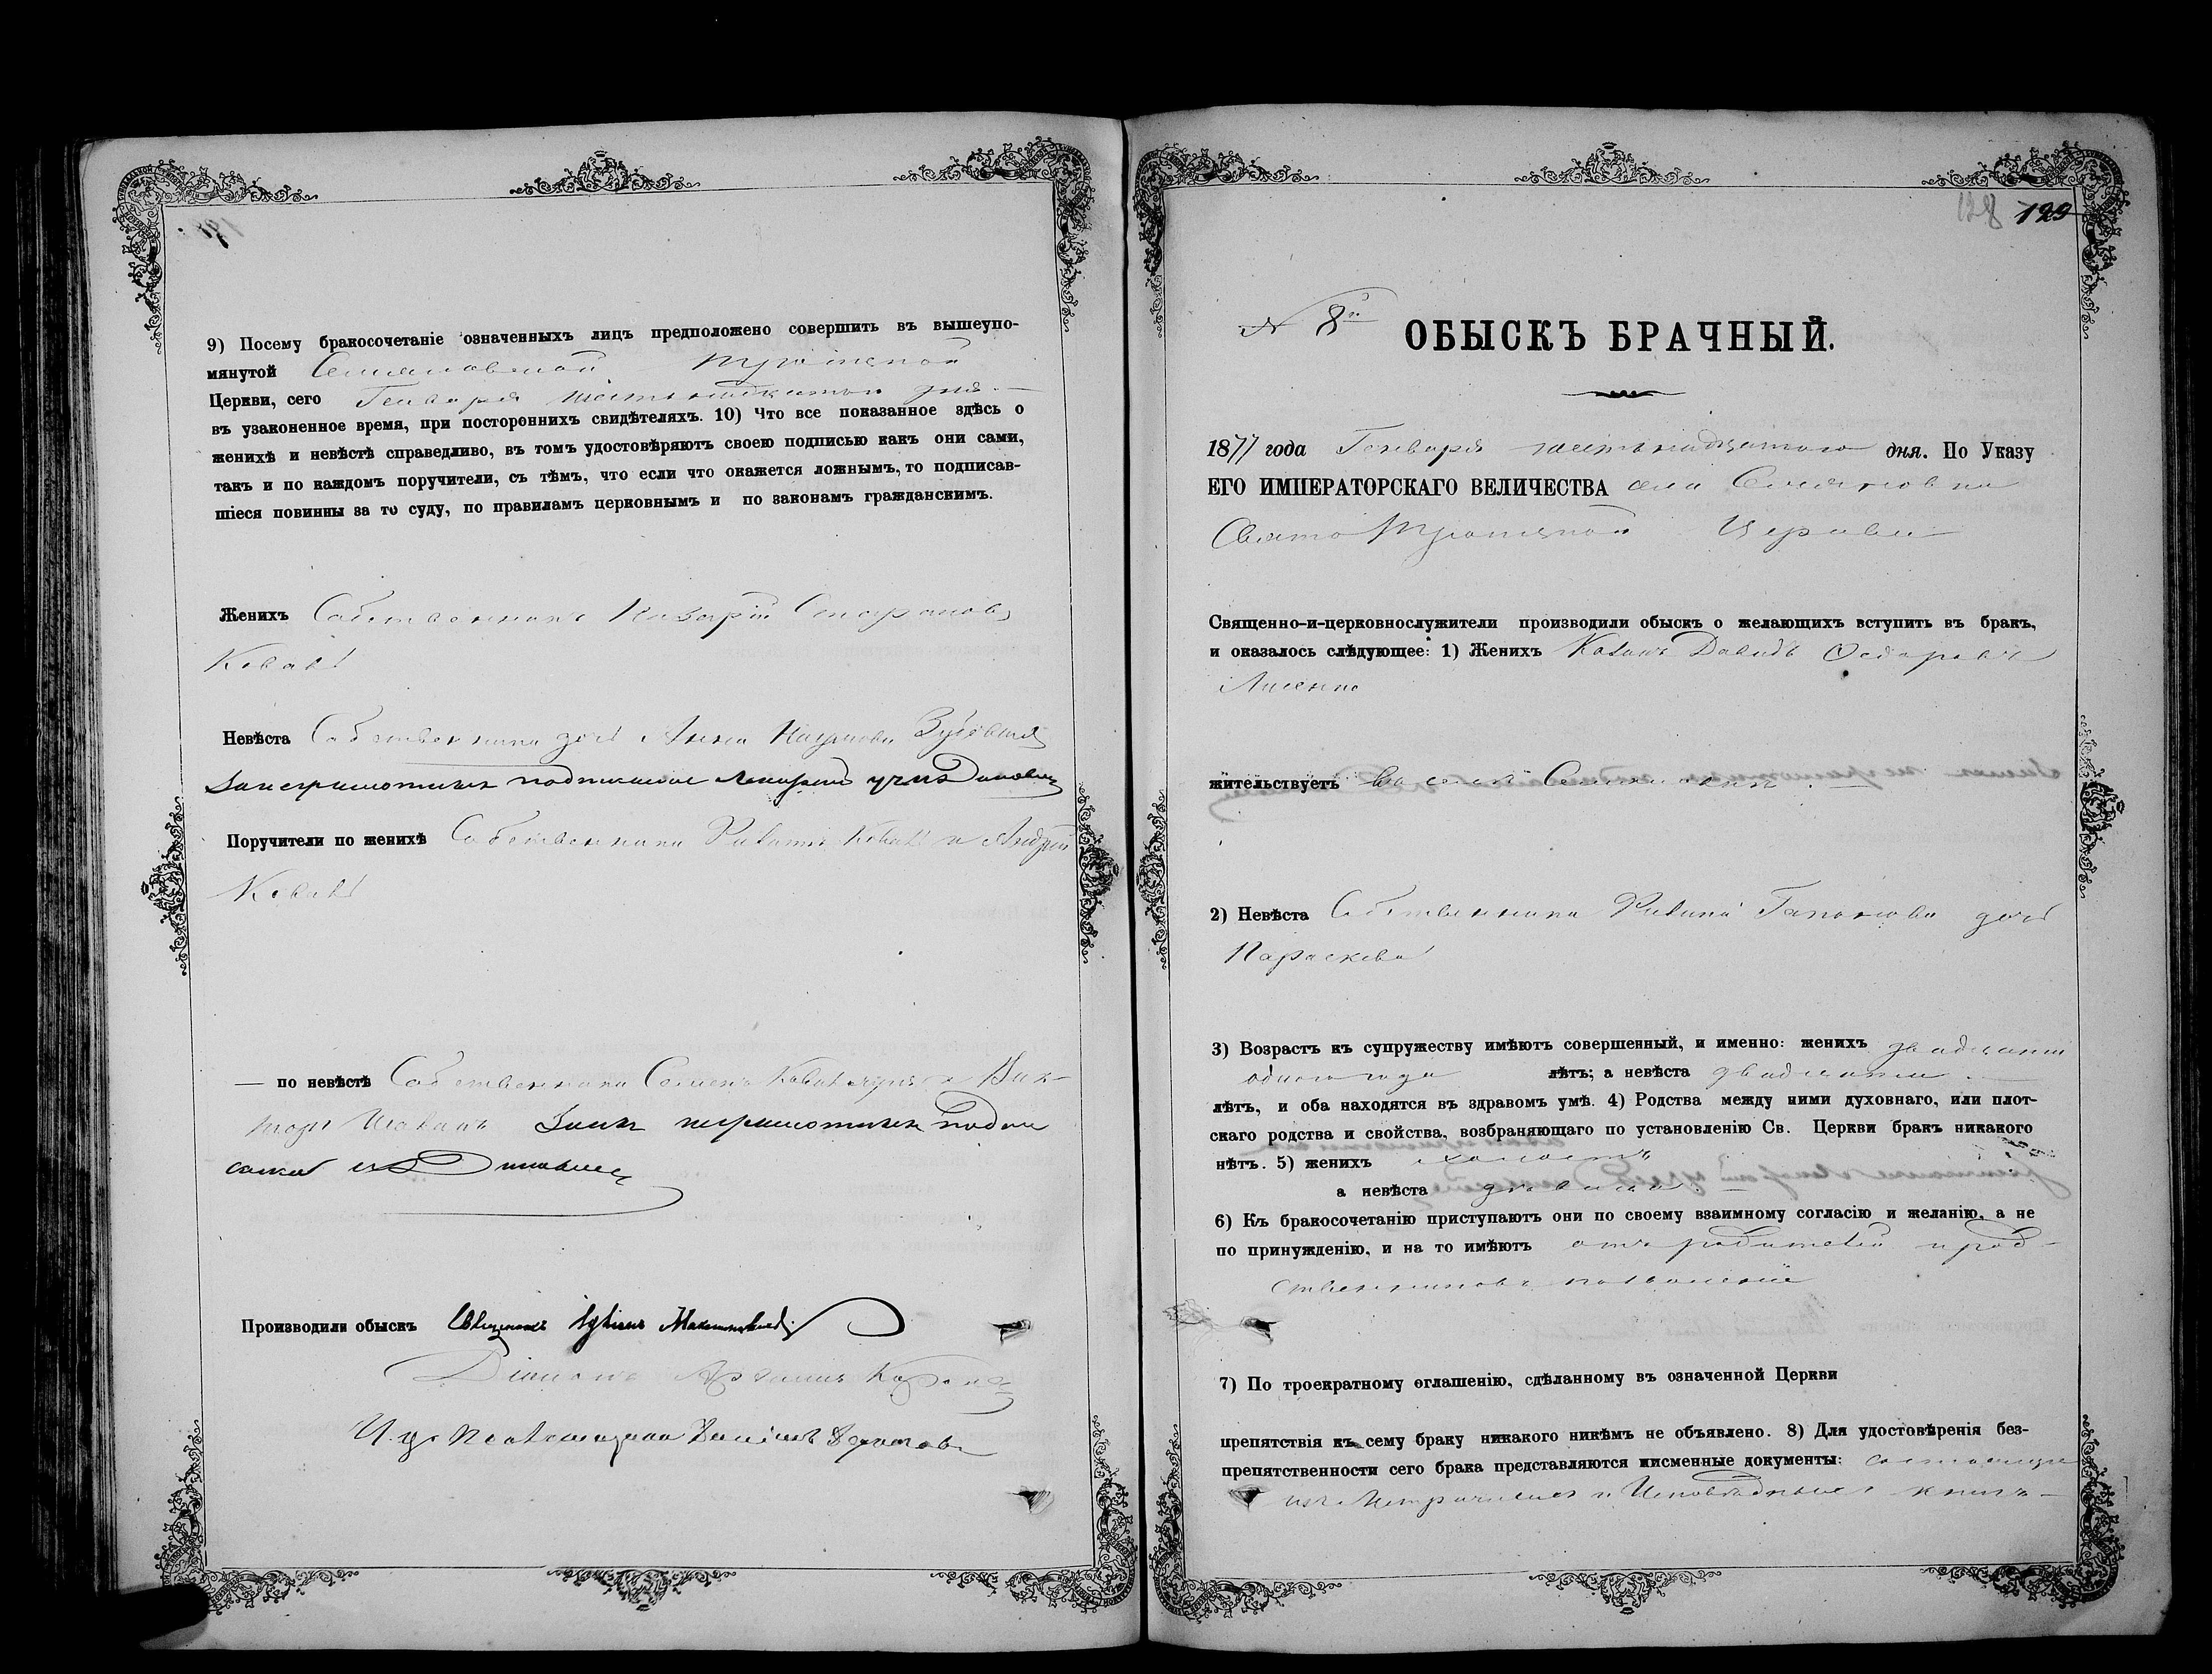 9) Посему бракосочетаніе означенныхъ лицъ предположено совершить въ вышеупо-
мянутой Семаковской Троицкой
Церкви, сего Генваря шестьнадцатого дня.
въ узаконенное время, при постороннихъ свидѣтеляхъ. 10) Что все показанное здѣсь о
женихѣ и невѣстѣ справедливо, въ томъ удостовѣряютъ своею подписью какъ они сами,
такъ и по каждомъ поручители, съ тѣмъ, что если что окажется ложнымъ, то подписав-
шіеся повинны за то суду, по правиламъ церковнымъ и по законамъ гражданскимъ.
Женихъ Собственникъ Назарій
Коваль
Невѣста Собственника дочь Анна Наумова
неграмотныхъ
Поручители по женихѣ Собственники Филипъ Коваль и Андрей
Коваль
— по невѣстѣ Собственники Семенъ и Вик-
торъ неграмотныхъ
Производили обыскъ Священникъ
И. д. Псаломщика
128 129
№ 8й
ОБЫСКЪ БРАЧНЫЙ.
1877 года Генваря шестьнадцатого дня. По Указу
ЕГО ИМПЕРАТОРСКАГО ВЕЛИЧЕСТВА села
Свято Троицкой Церкви
Священно-и-церковнослужители производили обыскъ о желающихъ вступить въ бракъ,
и оказалось слѣдующее: 1) Женихъ Козакъ Давидъ Федоровъ
Лисенко
жительствуетъ въ селѣ
2) Невѣста Собственника Филипа Гапонова дочь
Параскева
3) Возрастъ къ супружеству имѣютъ совершенный, и именно: женихъ двадцати
одного года лѣтъ; а невѣста двадцати
лѣтъ, и оба находятся въ здравомъ умѣ. 4) Родства между ними духовнаго, или плот-
скаго родства и свойства, возбраняющаго по установленію Св. Церкви бракъ никакого
нѣтъ. 5) женихъ холостъ
а невѣста дѣвица.
6) Къ бракосочетанію приступаютъ они по своему взаимному согласію и желанію, а не
по принужденію, и на то имѣютъ отъ родителей и род-
ственниковъ позволеніе
7) По троекратному оглашенію, сдѣланному въ означенной Церкви
препятствія къ сему браку никакого никѣмъ не объявлено. 8) Для удостовѣренія без-
препятственности сего брака представляются письменные документы: состоящіе
изъ Метрическихъ и Исповѣдныхъ книгъ